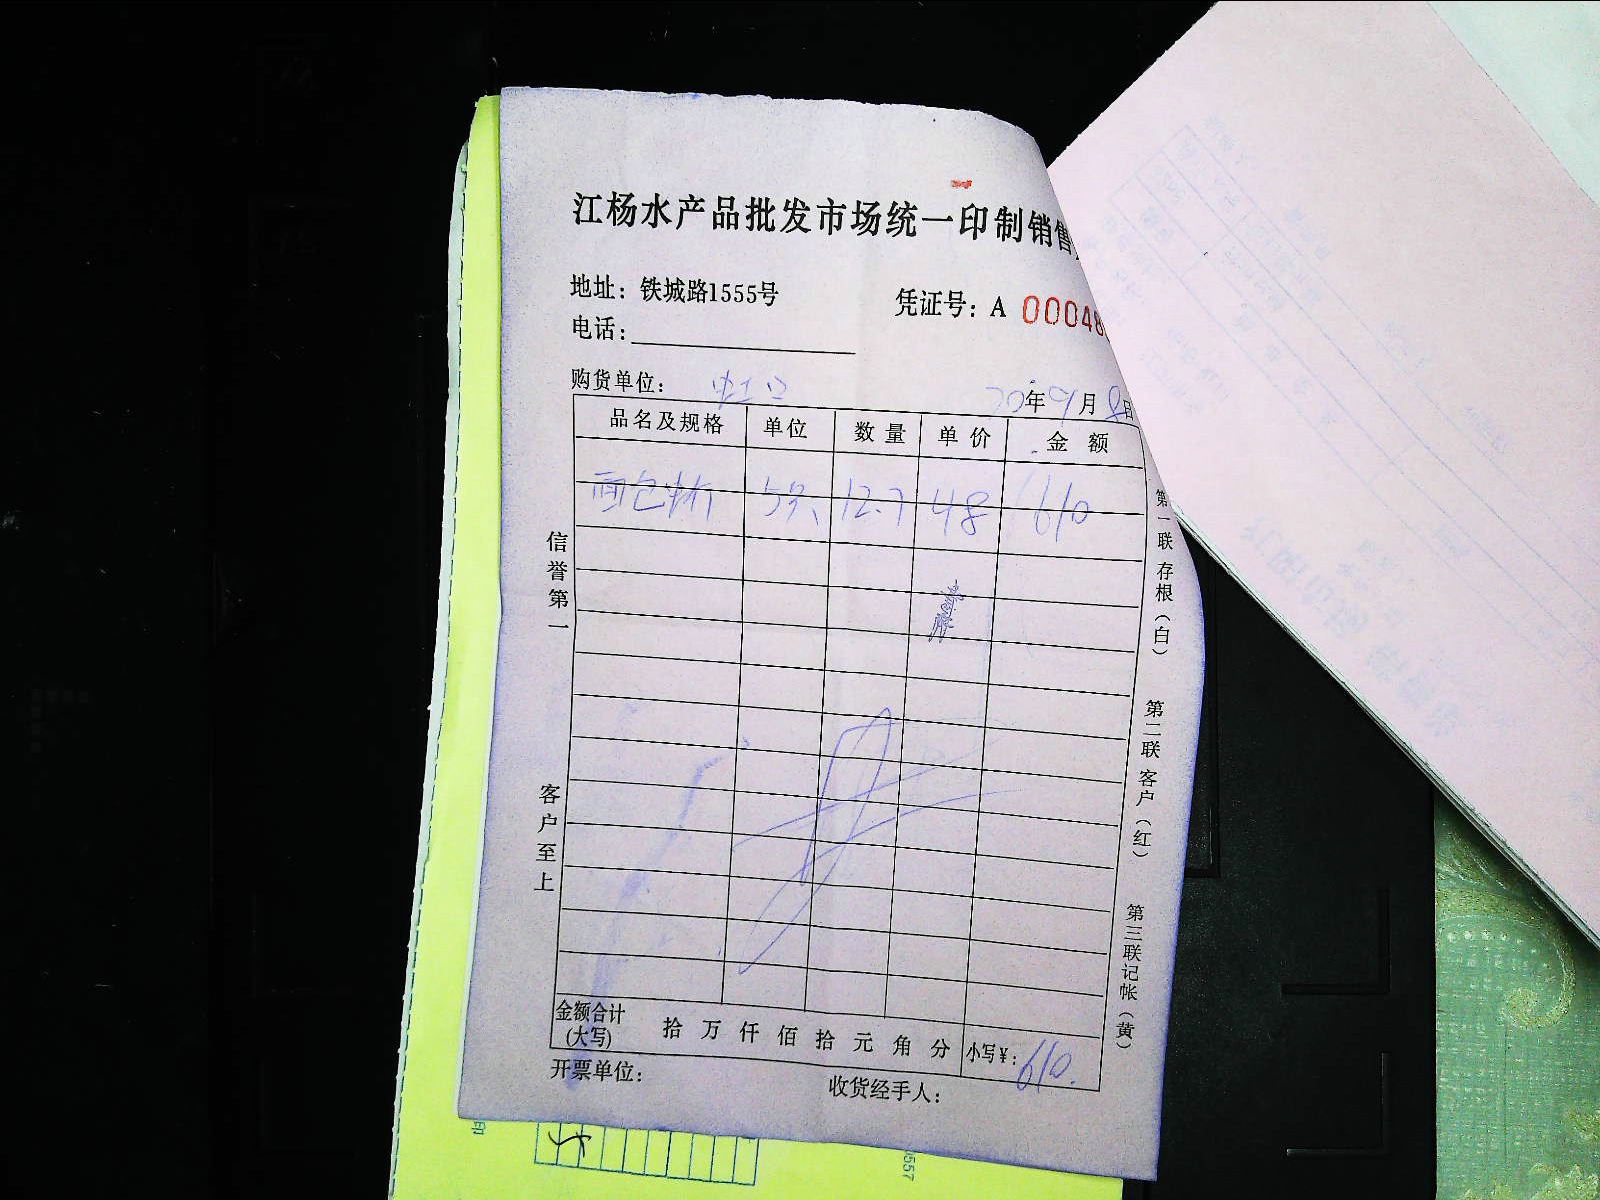 江杨水产品批发市场统一印制销售
地址：铁城路1555号
凭证号：A 00048
电话：
购货单位： 虹口
20年9月8日
品名及规格 单位 数量 单价 金额
12.7 48 610
信誉第一
客户至上
第一联 存根（白）
第二联 客户（红）
第三联 记帐（黄）
金额合计(大写) 拾 万 仟 佰 拾 元 角 分 小写￥：610.
开票单位： 收货经手人：
印
0557